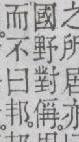 之所居亦
國野對偁
而不曰邦